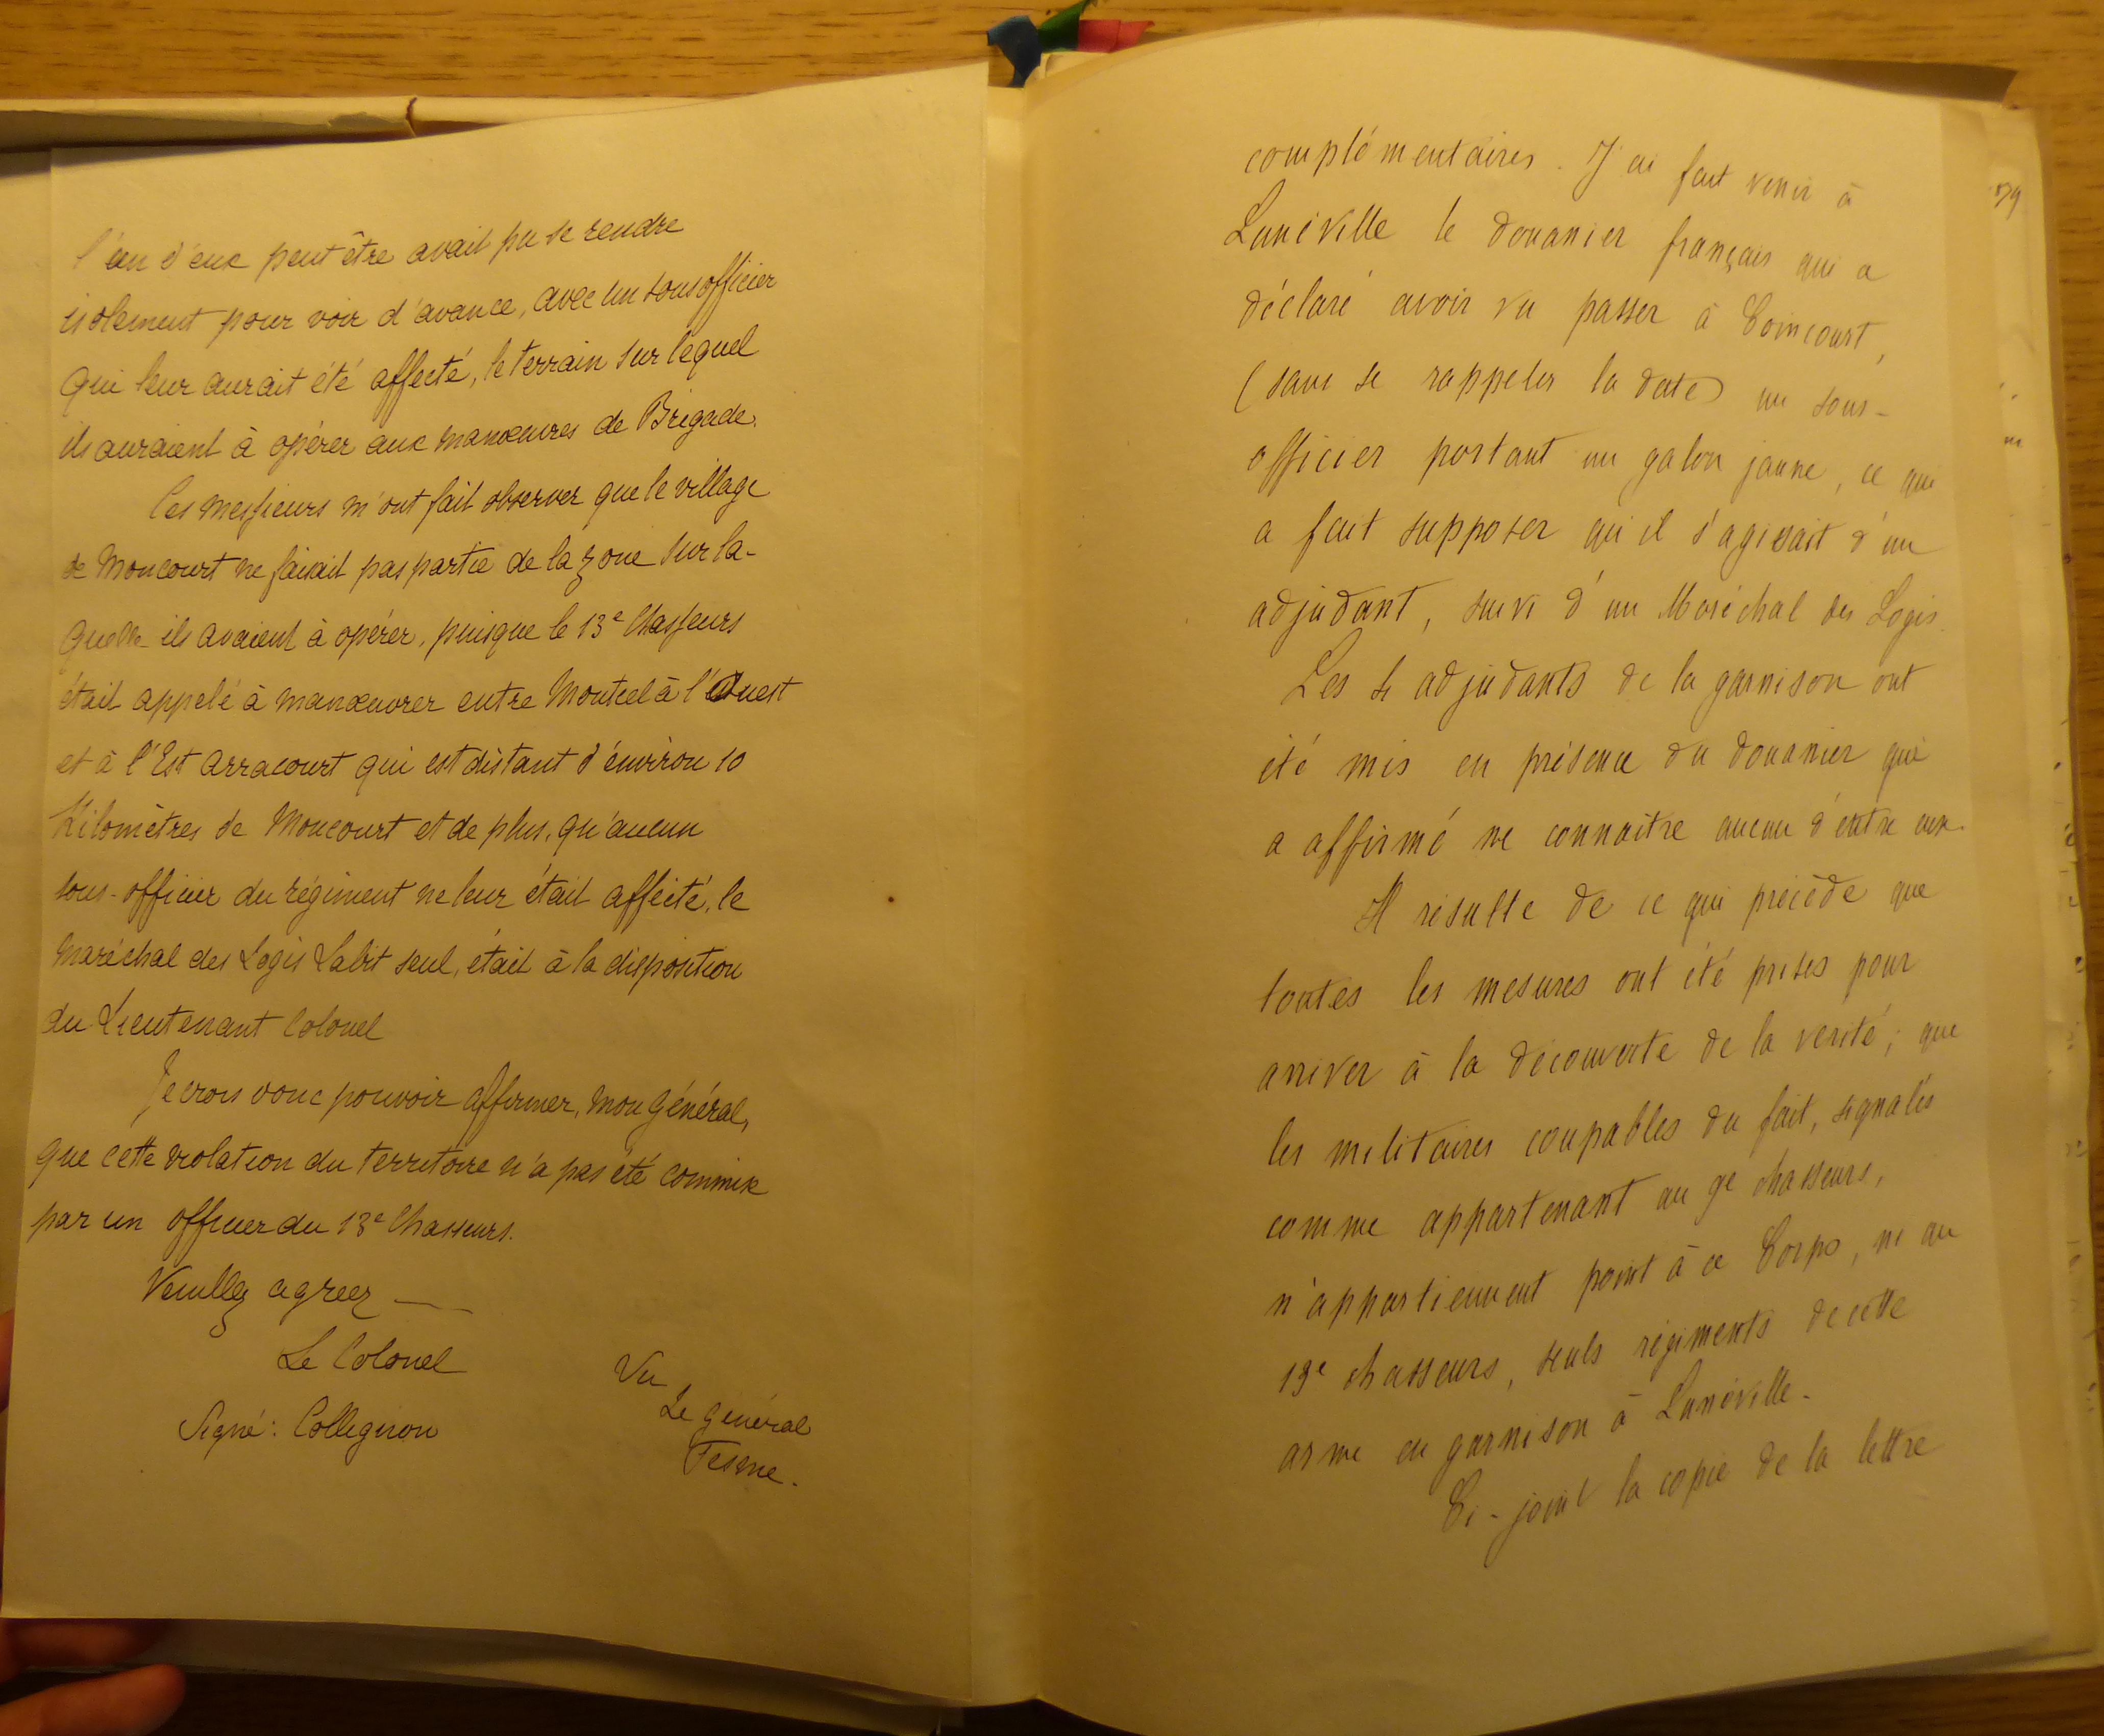 l'un d'eux peut être avait pu se rendre
isolement pour voir d'avance, avec un sous officier
qui leur aurait été affecté, le terrain sur lequel
ils auraient à opérer aux manœuvres de Brigade.
Ces messieurs m'ont fait observer que le village
de Moncourt ne faisait pas partie de la zone sur la-
quelle ils avaient à opérer, puisque le 13e Chasseurs
était appelé à manœuvrer entre Montcel à l'Ouest
et à l'Est Arracourt qui est distant d'environ 10
Kilomètres de Moncourt et de plus, qu'aucun
sous-officier du régiment ne leur était affecté, le
Maréchal des Logis Labit seul, était à la disposition
du Lieutenant Colonel
Je crois donc pouvoir affirmer, mon général,
que cette violation du territoire n'a pas été commise
par un officier du 13e Chasseurs.
Veuillez agréer
Le Colonel
Signé: Collignon
Vu
Le général
Fesme.
complémentaires. J'ai fait venir à
Lunéville le douanier français qui a
déclaré avoir vu passer à Coincourt,
(sans se rappeler la date) un sous-
officier portant un galon jaune, ce qui
a fait supposer qu'il s'agissait d'un
adjudant, suivi d'un Maréchal des Logis.
Les 4 adjudants de la garnison ont
été mis en présence du douanier qui
a affirmé ne connaître aucun d'entre eux.
Il résulte de ce qui précède que
toutes les mesures ont été prises pour
arriver à la découverte de la vérité; que
les militaires coupables du fait, signalés
comme appartenant au 9e chasseurs,
n'appartiennent point à ce Corps, ni au
13e chasseurs, seuls régiments de cette
arme en garnison à Lunéville.
Ci-joint la copie de la lettre